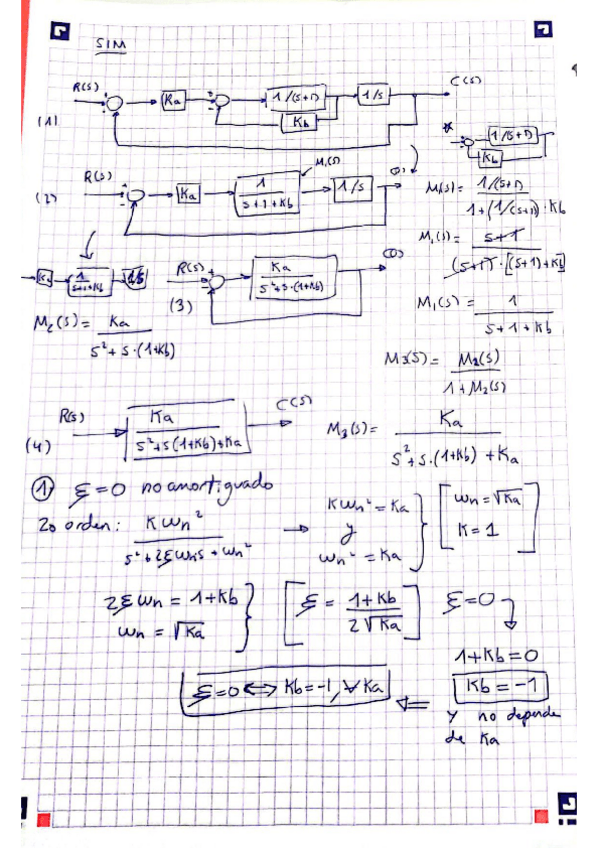 SIM
R(S) + - Ka + - 1/(S+1) 1/S C(S)
Kb
(1)
1/(S+1)
Kb
R(S) + - Ka 1/(S+1+Kb) M1(S) 1/S
(2)
M1(S) = 1/(S+1) / 1+(1/(S+1))·Kb
M1(S) = S+1 / (S+1)·[(S+1)+Kb]
Ka 1/(S+1+Kb) 1/S
R(S) + - Ka / S²+S·(1+Kb)
(3)
M1(S) = 1 / S+1+Kb
M2(S) = Ka / S²+S·(1+Kb)
M3(S) = M2(S) / 1+M2(S)
R(S) Ka / S²+S(1+Kb)+Ka C(S)
(4)
M3(S) = Ka / S²+S·(1+Kb)+Ka
1) ξ=0 no amortiguado
2o orden: K Wn² / S²+2ξWnS+Wn² → KWn² = Ka y Wn² = Ka } [ Wn = √Ka K = 1 ]
2ξWn = 1+Kb
Wn = √Ka
[ ξ = 1+Kb / 2√Ka ] ξ=0
1+Kb=0
Kb = -1
ξ=0 ↔ Kb=-1, ∀Ka ⇐ y no depende
de Ka